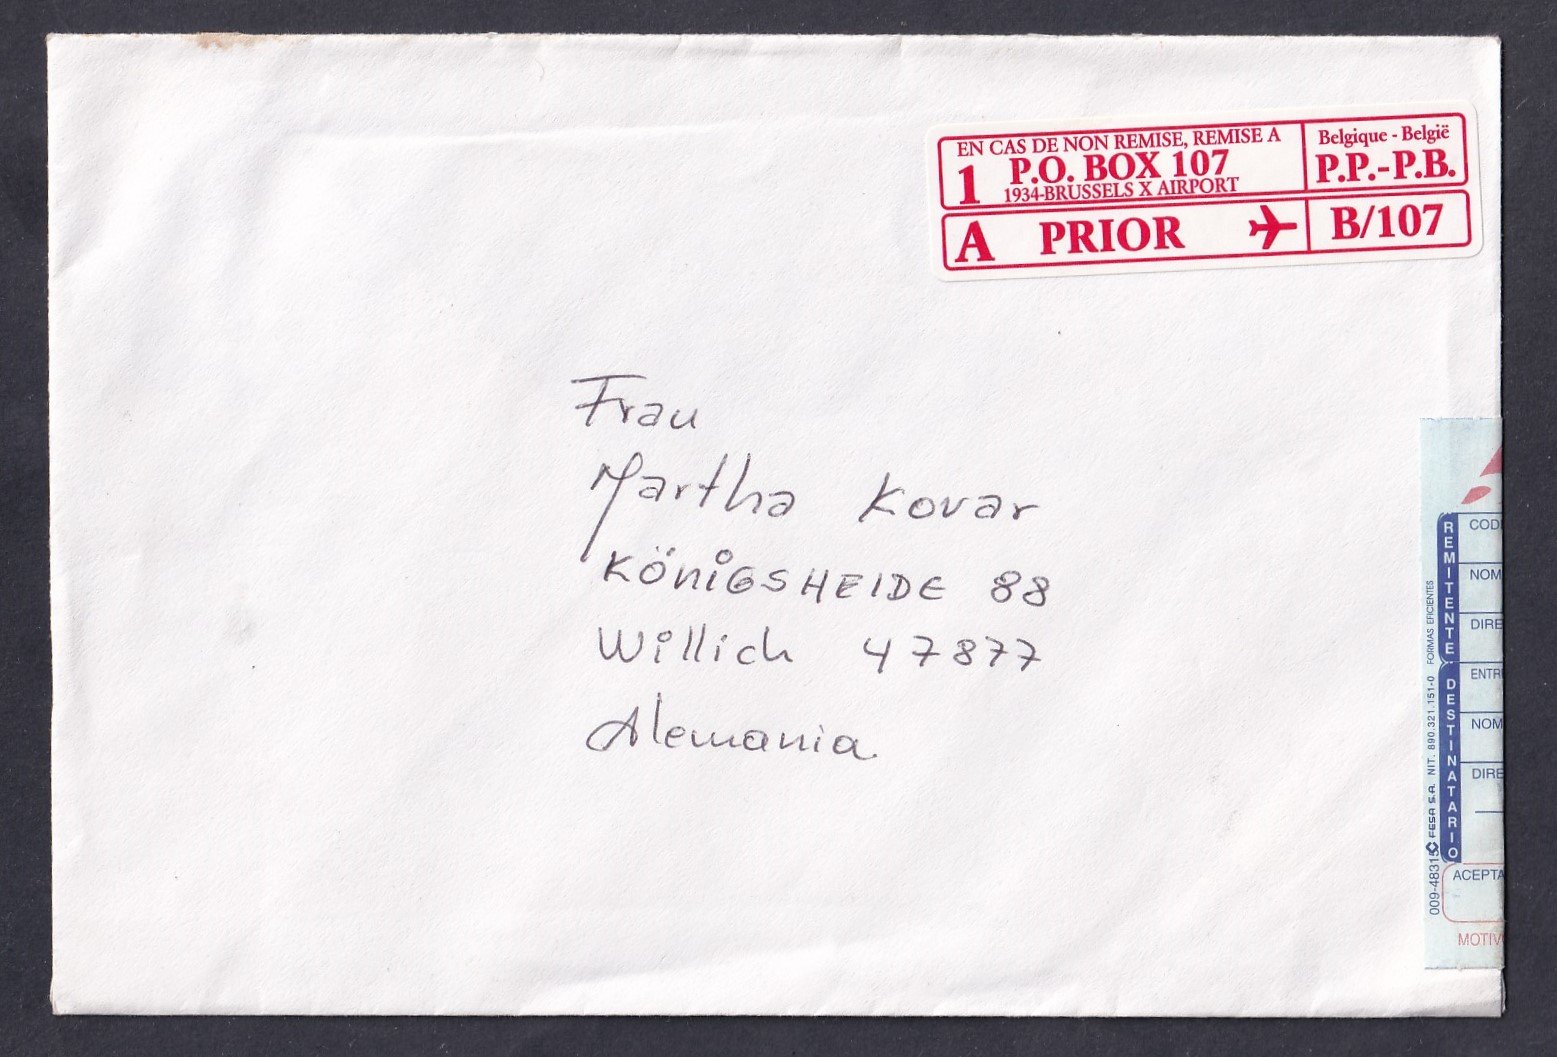 EN CAS DE NON REMISE, REMISE A
1 P.O. BOX 107
1934-BRUSSELS X AIRPORT
Belgique - België
P.P.-P.B.
A PRIOR
B/107
Frau
Martha Kovar
KÖNIGSHEIDE 88
Willich 47877
Alemania
REMITENTE
DESTINATARIO
COD
NOM
DIRE
ENTR
NOM
DIRE
ACEPTA
MOTIV
009-48315 FESA S.A. NIT. 890.321.151-0 FORMAS EFICIENTES